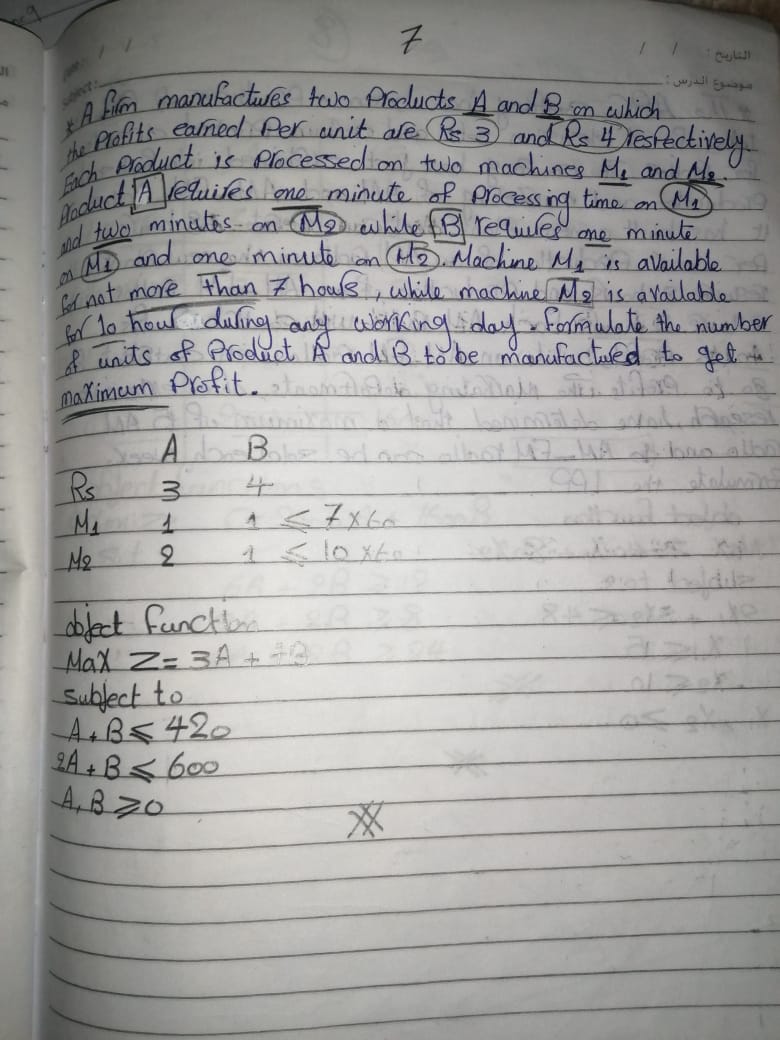 7
التاريخ: / /
موضوع الدرس:
* A firm manufactures two Products A and B on which
the Profits earned Per unit are Rs 3 and Rs 4 respectively.
Each Product is Processed on two machines M1 and M2.
Product A requires one minute of Processing time on M1
and two minutes on M2 while B requires one minute
on M1 and one minute on M2. Machine M1 is available
for not more than 7 hours, while machine M2 is available
for 10 hour during any working day. formulate the number
of units of Product A and B to be manufactured to get
maximum Profit.
A B
Rs 3 4
M1 1 1 ≤ 7 x 60
M2 2 1 ≤ 10 x 60
object function
Max Z = 3A +
subject to
A + B ≤ 420
2A + B ≤ 600
A, B ≥ 0